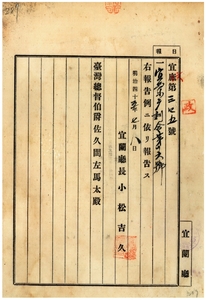 報 日
宜廳第三七五號
一宜蘭廳令第六號
右報告例ニ依リ報告ス
明治四十五年七月八日
宜蘭廳長小松吉久
臺灣總督伯爵佐久間左馬太殿
宜蘭廳